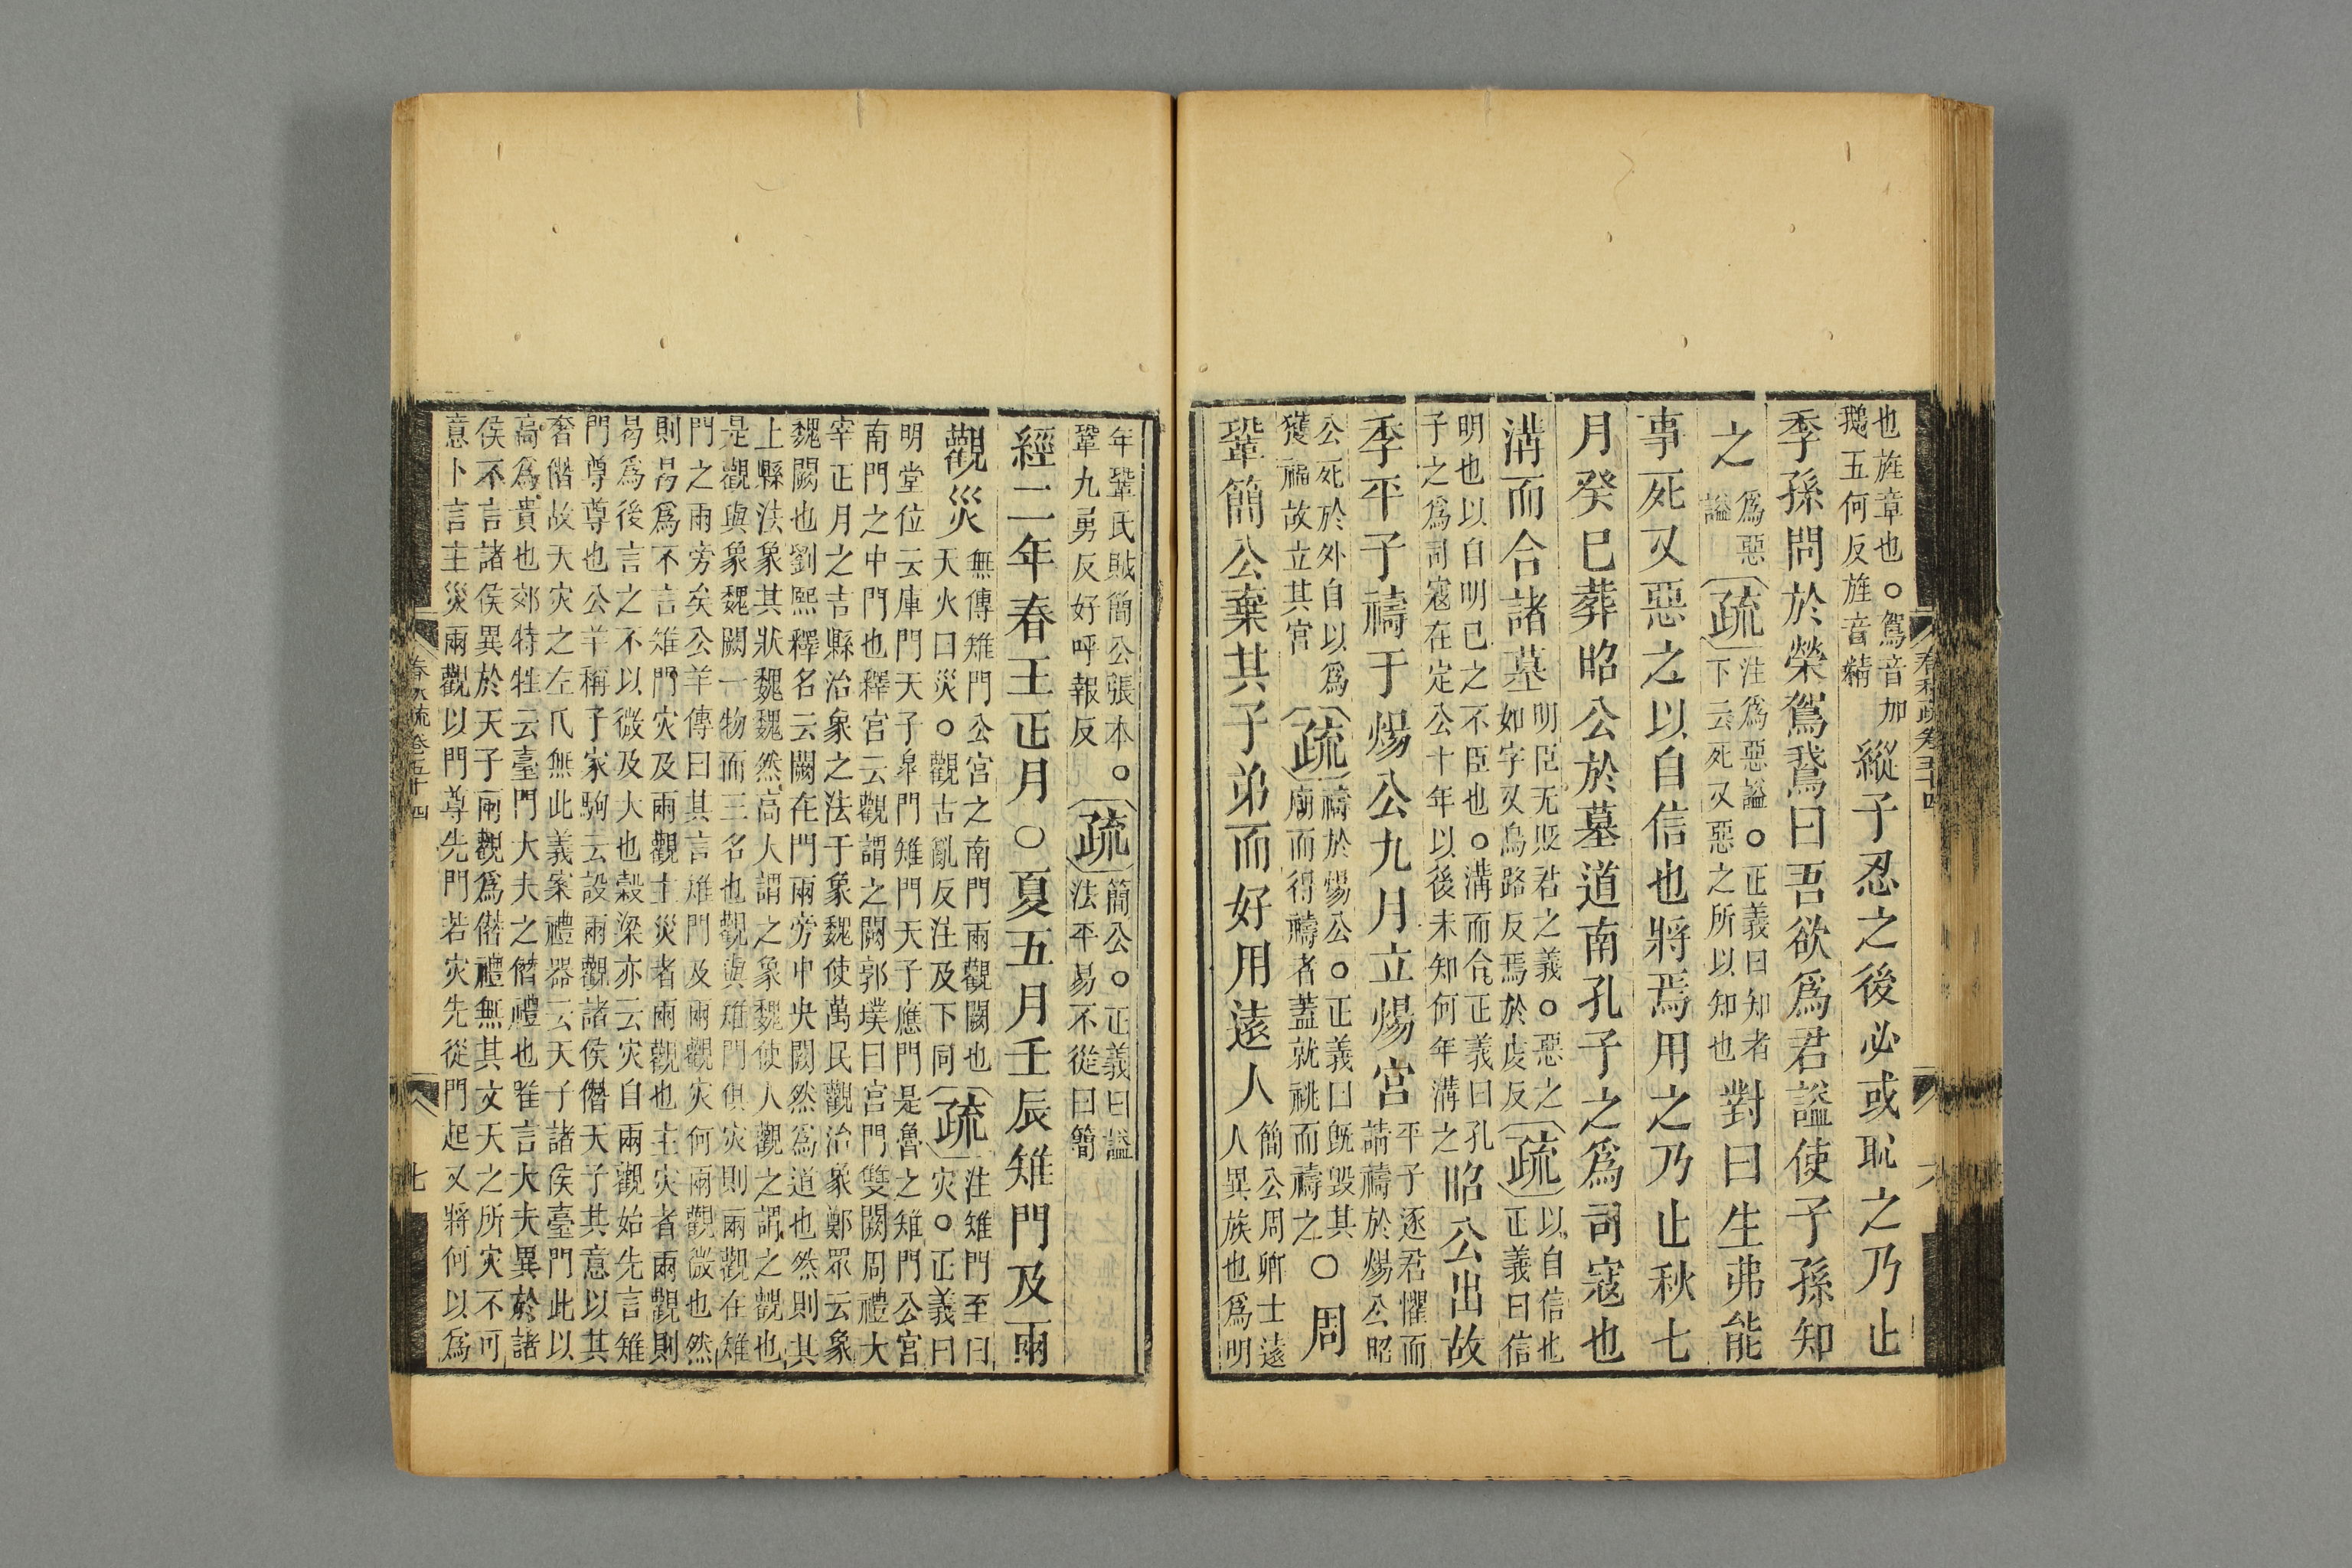 也旌章也○駕音加
鵝五何反旌音精
縱子忍之後必或恥之乃止
季孫問於榮駕鵞曰吾欲爲君謚使子孫知
之
爲惡
謚
疏
注爲惡謚○正義曰知者
下云死又惡之所以知也
對曰生弗能
事死又惡之以自信也將焉用之乃止秋七
月癸巳葬昭公於墓道南孔子之爲司寇也
溝而合諸墓
明臣无貶君之義○惡之
如字又烏路反焉於虔反
疏
以自信也
正義曰信
明也以自明己之不臣也○溝而合正義曰孔
子之爲司寇在定公十年以後未知何年溝之
昭公出故
季平子禱于煬公九月立煬宮
平子逐君懼而
請禱於煬公昭
公死於外自以爲
獲福故立其宮
疏
禱於煬公○正義曰旣毀其
廟而得禱者蓋就祧而禱之
○周
鞏簡公棄其子弟而好用遠人
簡公周卿士遠
人異族也爲明
春秋疏卷五十四
年鞏氏賊簡公張本○
鞏九勇反好呼報反
疏
簡公○正義曰謚
法平易不從曰簡
經二年春王正月○夏五月壬辰雉門及兩
觀災
無傳雉門公宮之南門兩觀闕也
天火曰災○觀古亂反注及下同
疏
注雉門至曰
灾○正義曰
明堂位云庫門天子臯門雉門天子應門是魯之雉門公宮
南門之中門也釋宮云觀謂之闕郭璞曰宮門雙闕周禮大
宰正月之吉縣治象之法于象魏使萬民觀治象鄭眾云象
魏闕也劉熙釋名云闕在門兩旁中央闕然爲道也然則其
上縣法象其狀魏魏然高大謂之象魏使人觀之謂之觀也
是觀與象魏闕一物而三名也觀與雉門俱灾則兩觀在雉
門之兩旁矣公羊傳曰其言雉門及兩觀灾何兩觀微也然
則曷爲不言雉門灾及兩觀主災者兩觀也主灾者兩觀則
曷爲後言之不以微及大也榖梁亦云灾自兩觀始先言雉
門尊尊也公羊稱子家駒云設兩觀諸侯僭天子其意以其
奢僭故天灾之左氏無此義案禮器云天子諸侯臺門此以
高爲貴也郊特牲云臺門大夫之僭禮也唯言大夫異於諸
侯不言諸侯異於天子兩觀爲僭禮無其文天之所灾不可
意卜言主災兩觀以門尊先門若灾先從門起又將何以爲
春秋疏卷五十四
七